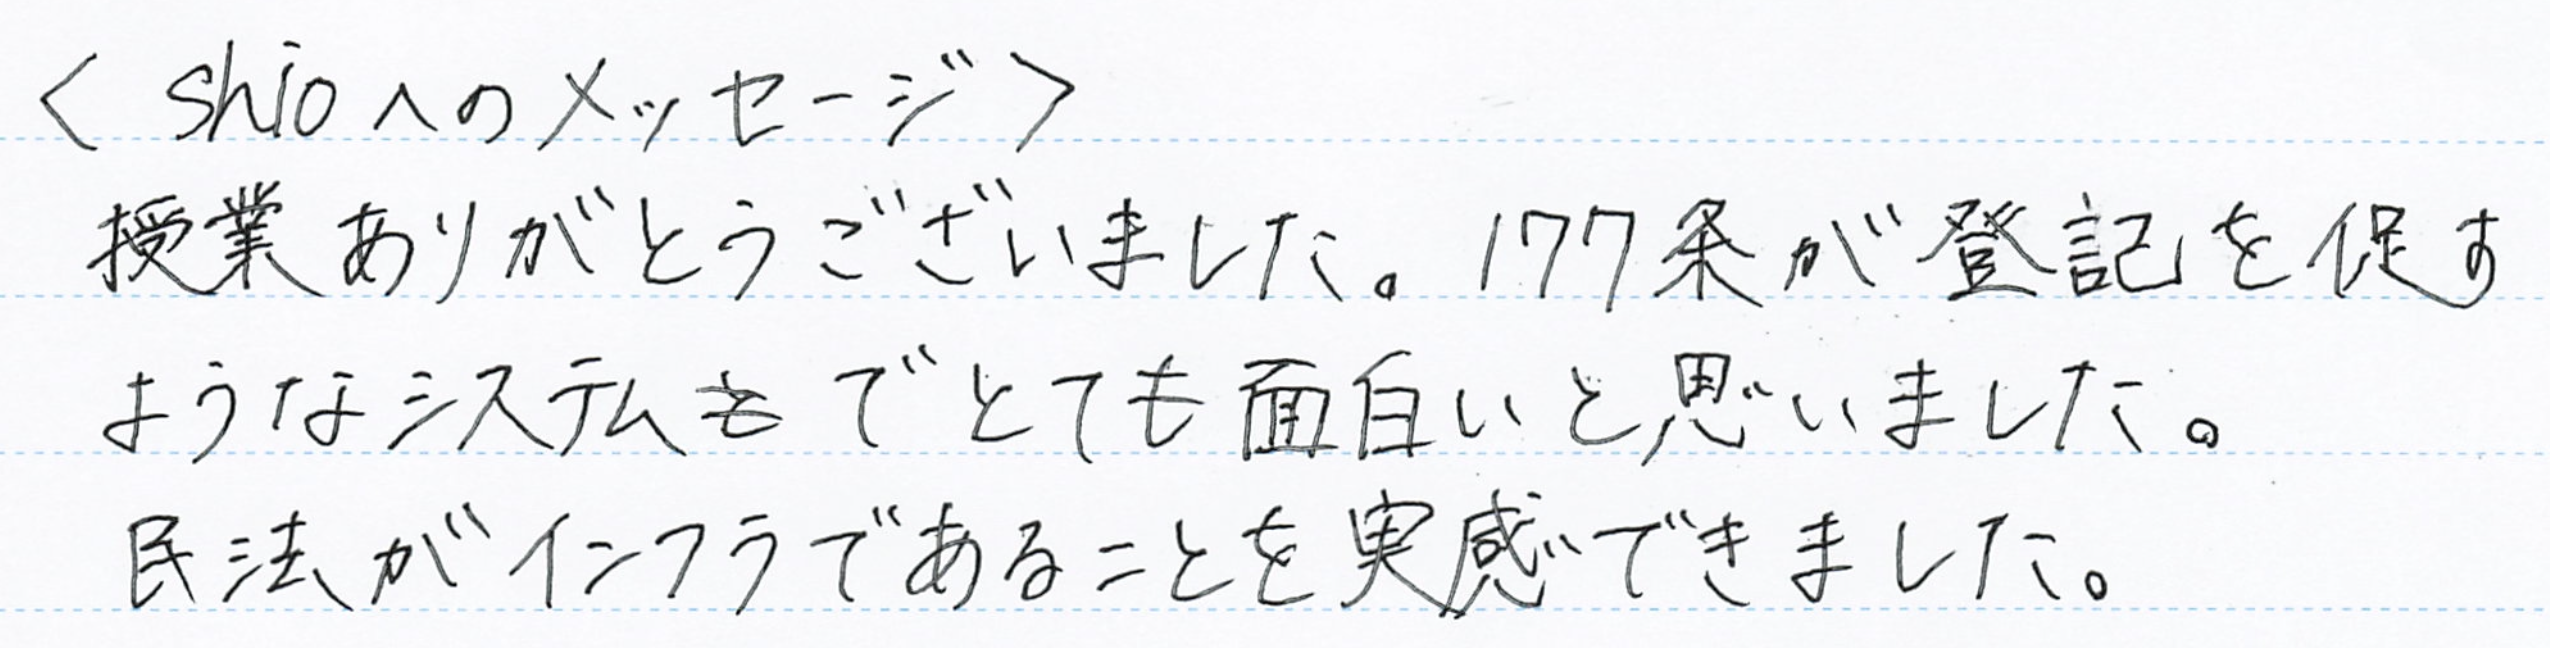 < shioへのメッセージ>
授業ありがとうございました。177条が登記を促す
ようなシステムでとても面白いと思いました。
民法がインフラであることを実感できました。